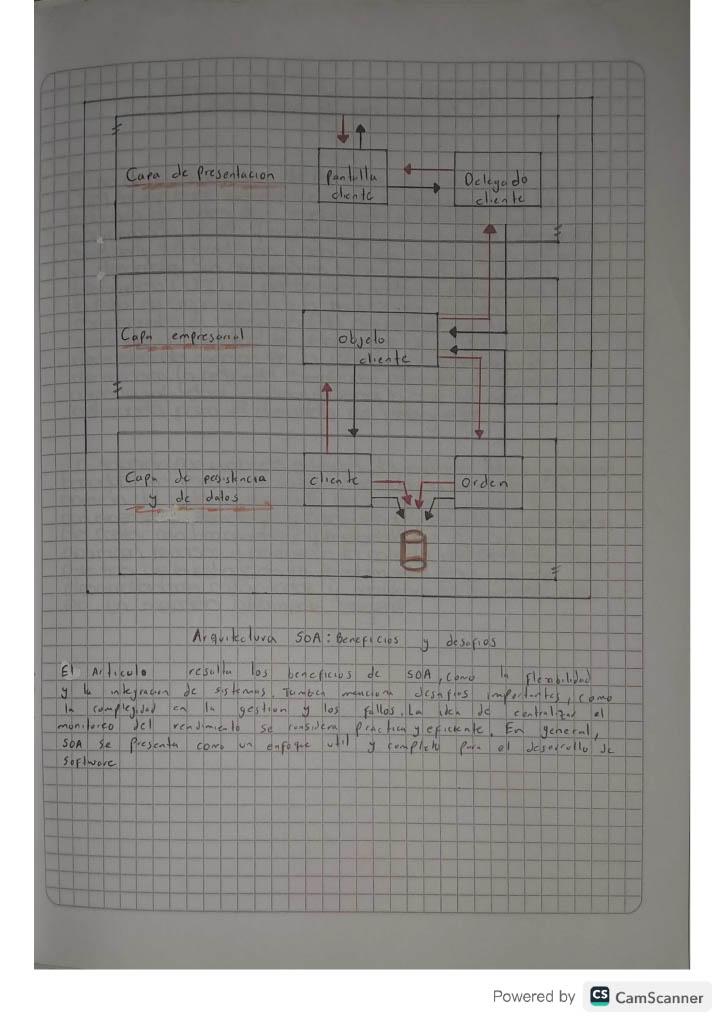 Capa de Presentacion
Pantalla
cliente
Delegado
cliente
Capa empresarial
Objeto
cliente
Capa de pesistencia
y de datos
cliente
orden
Arquitectura SOA: Beneficios y desafios
El Articulo resulta los beneficios de SOA, como la flexibilidad
y la integracion de sistemas. Tambien menciona desafios importantes, como
la complegidad en la gestion y los fallos. La idea de centralizar el
monitoreo del rendimiento se considera practica y eficiente. En general,
SOA se presenta como un enfoque util y completo para el desarrollo de
Software
Powered by CS CamScanner